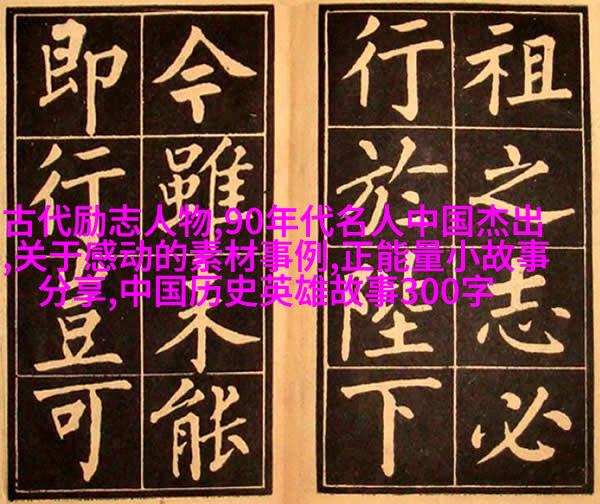 祖之志必
行於陛下
今雖未能
即行豈可
古代励志人物,90年代名人中国杰出
,关于感动的素材事例,正能量小故事
分享,中国历史英雄故事300字